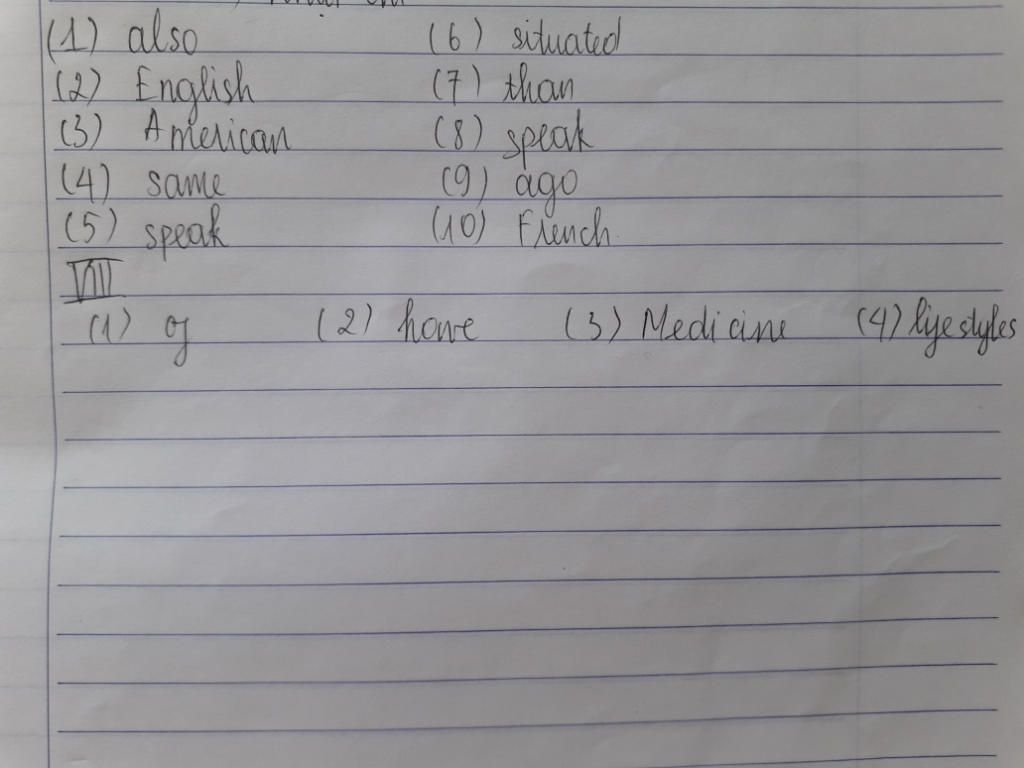 (1) also (6) situated
(2) English (7) than
(3) American (8) speak
(4) same (9) ago
(5) speak (10) French.
VIII
(1) of (2) have (3) Medicine (4) lifestyles